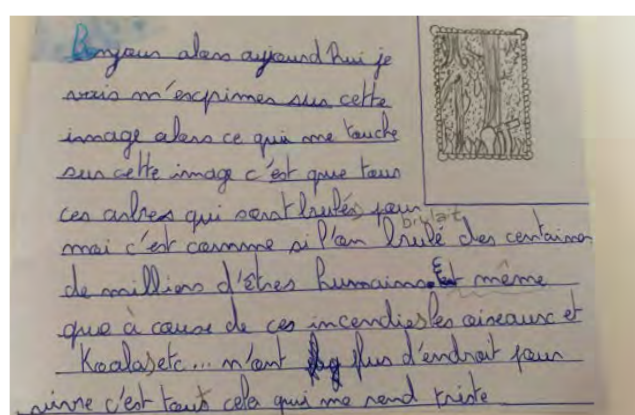 Bonjour alors aujourd'hui je
vais m'exprimer sur cette
image alors ce qui me touche
sur cette image c'est que tous
ces arbres qui sont brulés pour
brulait
moi c'est comme si l'on brulé des centaines
de milliers d'êtres humains. Et même
que à cause de ces incendies les oiseaux et
Koalas etc... n'ont plus d'endroit pour
vivre c'est tout cela qui me rend triste